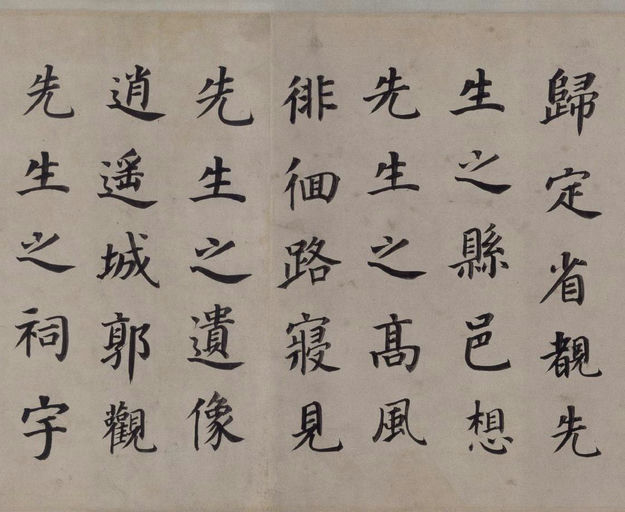 歸定省覩先
生之縣邑想
先生之高風
徘徊路寢見
先生之遺像
逍遥城郭觀
先生之祠宇